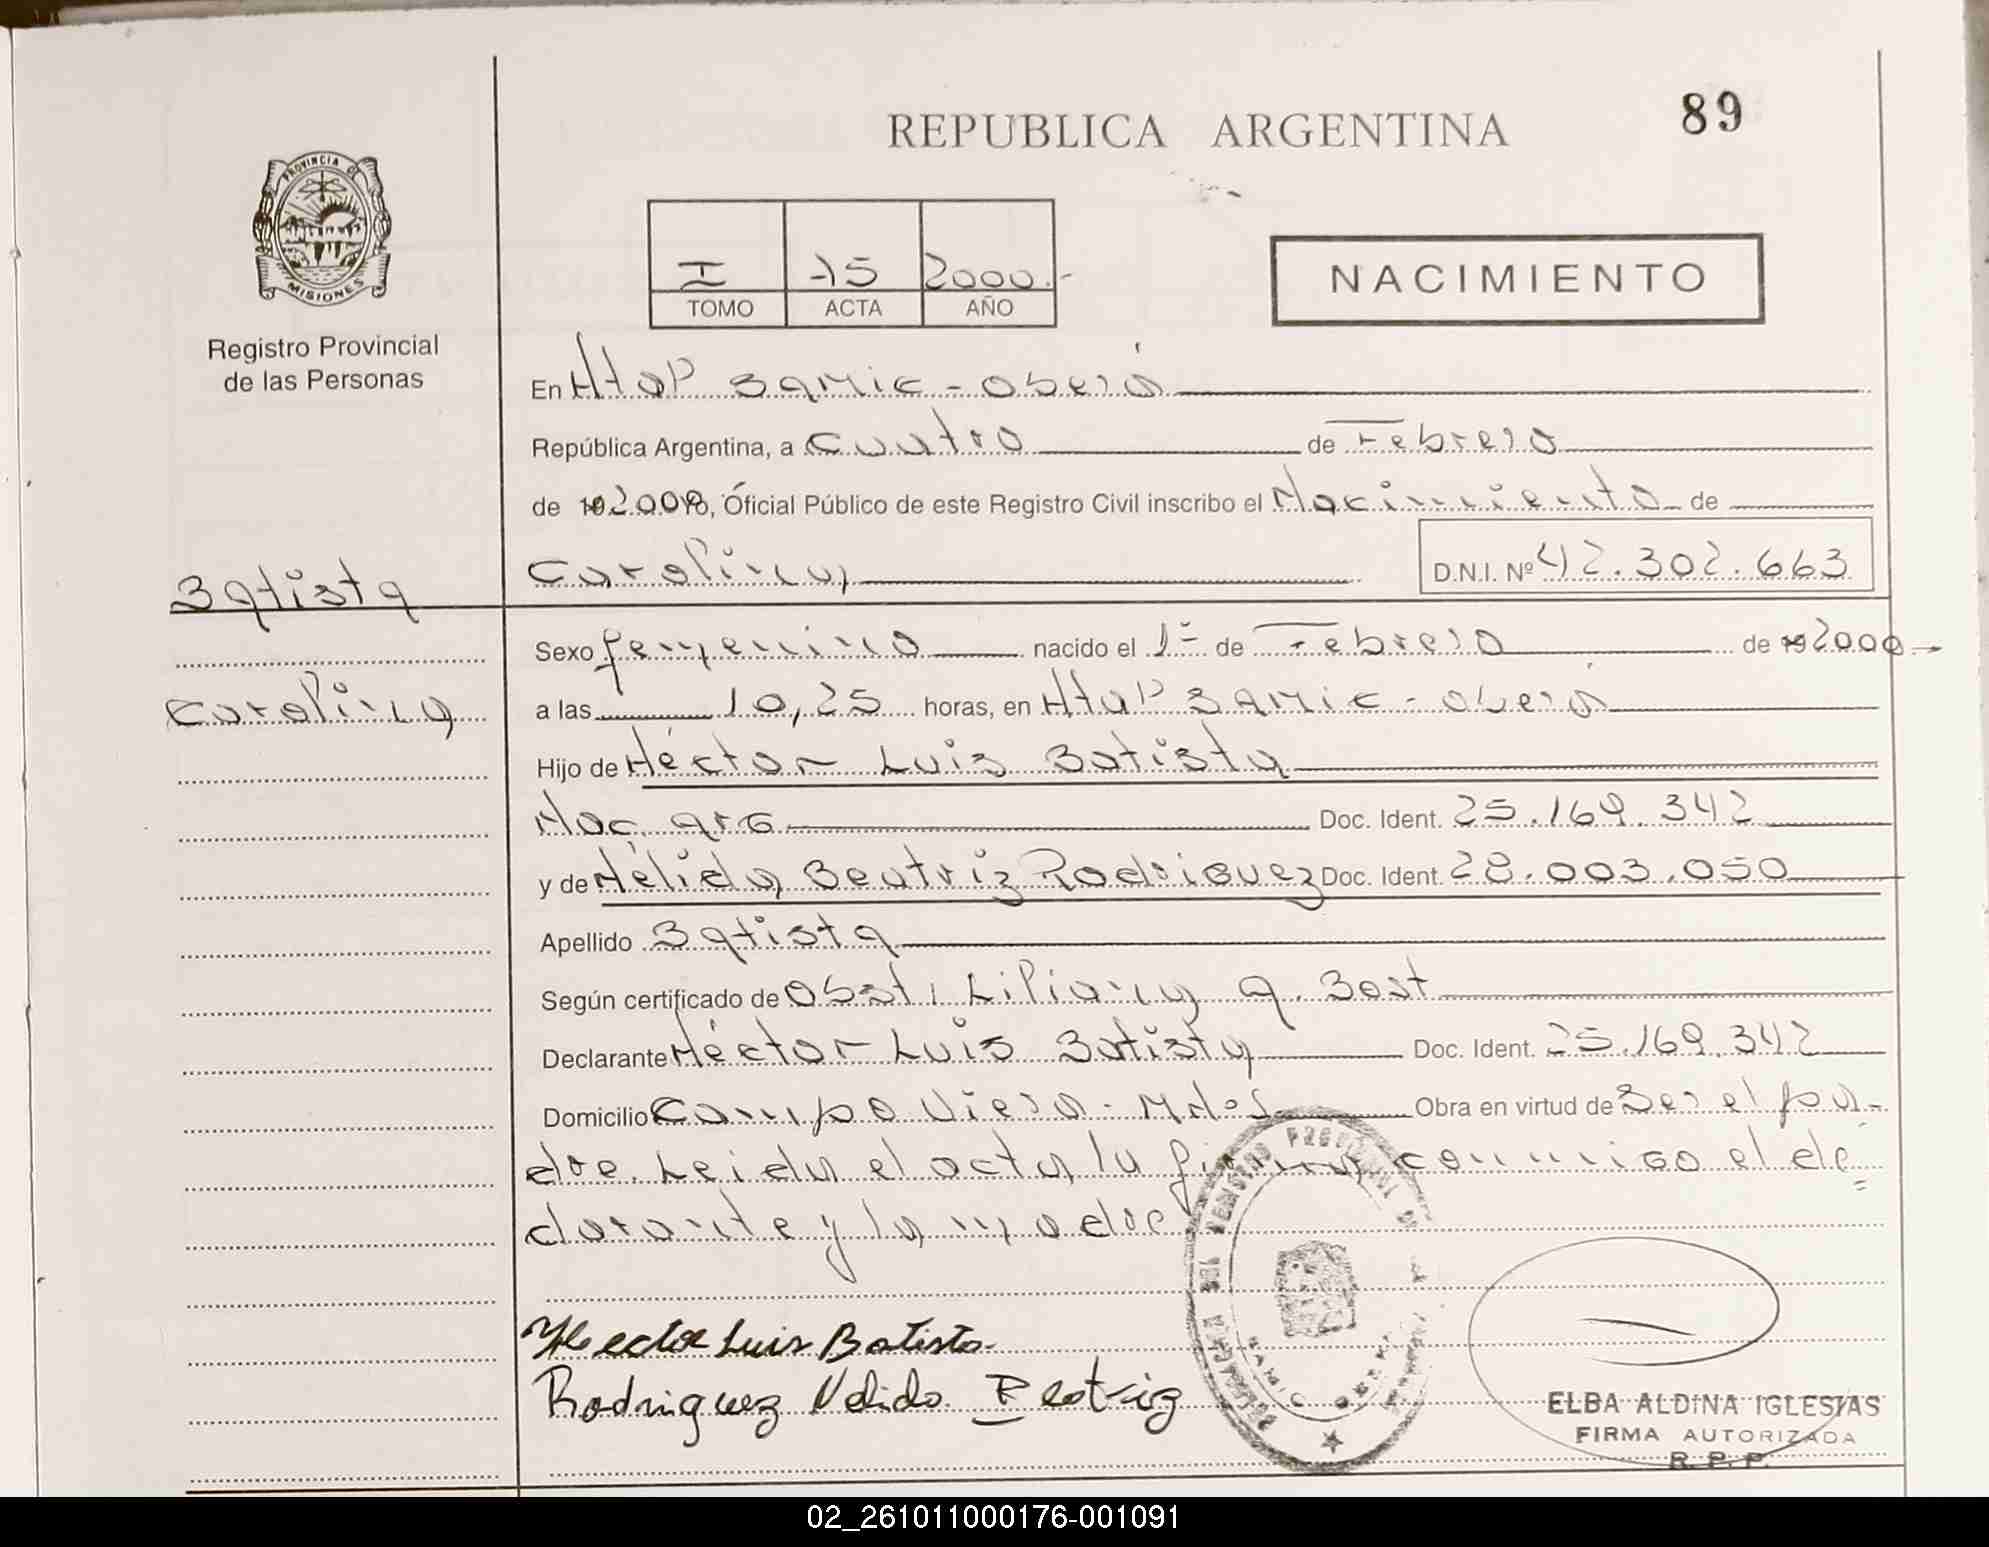 REPUBLICA ARGENTINA
89
PROVINCIA DE
MISIONES
Registro Provincial
de las Personas
I 15 2000.-
TOMO ACTA AÑO
NACIMIENTO
En Htal Samic - Oberá
República Argentina, a Cuatro de Febrero
de 192000, Oficial Público de este Registro Civil inscribo el Nacimiento de
Carolina
D.N.I. Nº 42.302.663
Batista
Carolina
Sexo femenino nacido el 1º de Febrero de 192000-
a las 10,25 horas, en Htal Samic - Oberá
Hijo de Héctor Luis Batista
Nac. arg Doc. Ident. 25.169.342
y de Nélida Beatriz Rodriguez Doc. Ident. 28.003.050
Apellido Batista
Según certificado de Obst. Liliana A. Bost
Declarante Héctor Luis Batista Doc. Ident. 25.169.342
Domicilio Campo Viera - Mnes Obra en virtud de Ser el pa-
dre. Leida el acta, la firma conmigo el de=
clarante y la madre
Hector Luis Batista
Rodriguez Nelida Beatriz
ELBA ALDINA IGLESIAS
FIRMA AUTORIZADA
R. P. P.
02_261011000176-001091